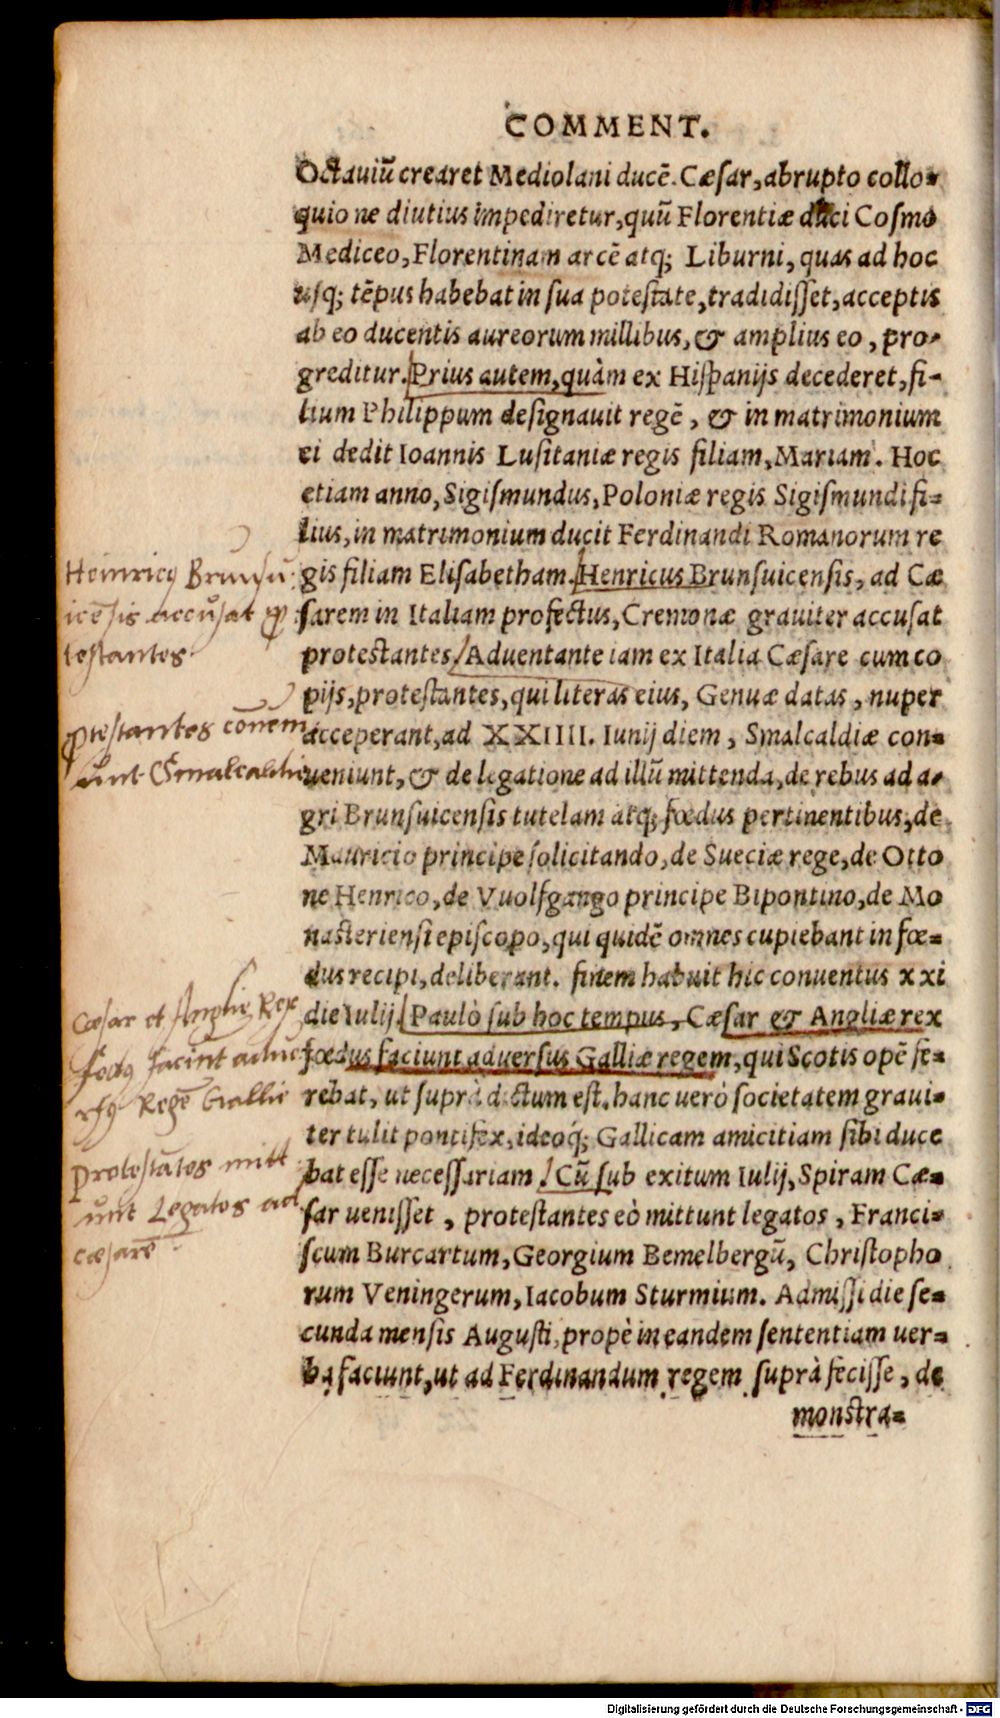 COMMENT.
Octauiũ crearet Mediolani ducẽ. Cæsar, abrupto collo-
quio ne diutius impediretur, quũ Florentiæ duci Cosmo
Mediceo, Florentinam arcẽ atq; Liburni, quas ad hoc
usq; tẽpus habebat in sua potestate, tradidisset, acceptis
ab eo ducentis aureorum millibus, & amplius eo, pro-
greditur. Prius autem, quàm ex Hispanijs decederet, fi-
lium Philippum designauit regẽ, & in matrimonium
ei dedit Ioannis Lusitaniæ regis filiam, Mariam. Hoc
etiam anno, Sigismundus, Poloniæ regis Sigismundi fi-
lius, in matrimonium ducit Ferdinandi Romanorum re
gis filiam Elisabetham. Henricus Brunsuicensis, ad Cæ
sarem in Italiam profectus, Cremonæ grauiter accusat
protestantes. Aduentante iam ex Italia Cæsare cum co
pijs, protestantes, qui literas eius, Genuæ datas, nuper
acceperant, ad XXIIII. Iunij diem, Smalcaldiæ con-
ueniunt, & de legatione ad illũ mittenda, de rebus ad a-
gri Brunsuicensis tutelam atq; fœdus pertinentibus, de
Mauricio principe solicitando, de Sueciæ rege, de Otto
ne Henrico, de Vuolfgango principe Bipontino, de Mo
nasteriensi episcopo, qui quidẽ omnes cupiebant in fœ-
dus recipi, deliberant. finem habuit hic conuentus xxi
die Iulij. Paulò sub hoc tempus, Cæsar & Angliæ rex
fœdus faciunt aduersus Galliæ regem, qui Scotis opẽ fe-
rebat, ut suprà dictum est. hanc verò societatem graui-
ter tulit pontifex, ideoq́; Gallicam amicitiam sibi duce
bat esse necessariam. Cũ sub exitum Iulij, Spiram Cæ-
sar uenisset, protestantes eò mittunt legatos, Franci-
scum Burcartum, Georgium Bemelbergũ, Christopho
rum Veningerum, Iacobum Sturmium. Admissi die se-
cunda mensis Augusti, propè in eandem sententiam uer-
ba faciunt, ut ad Ferdinandum regem suprà fecisse, de
monstra-
Heinricꝰ Brunsu
icẽsis accusat ꝓ
testantes.
ꝓtestantes cõuem
unt Smalcaldie
Cæsar et Anglie Rex
fedꝰ faciut adue
rsꝰ Regẽ Gallie
protestãtes mitt
unt Legatos ad
cæsarẽ.
Digitalisierung gefördert durch die Deutsche Forschungsgemeinschaft - DFG